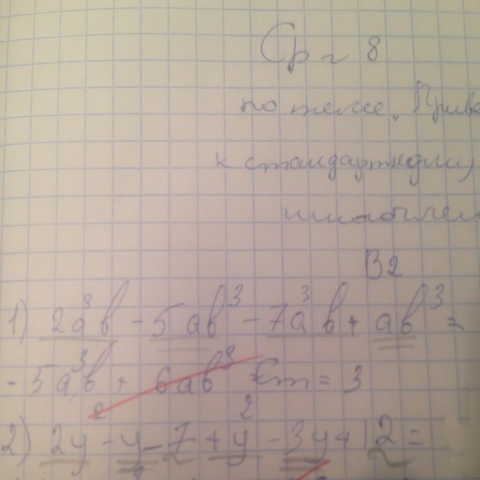 Ср 8
по теме "Приве
к стандартному
многочлен
В2
1) 2a³b - 5ab³ - 7a³b + ab³ =
- 5a³b + 6ab³ Ст = 3
2) 2y - y² - 7 + y² - 3y + 12 =